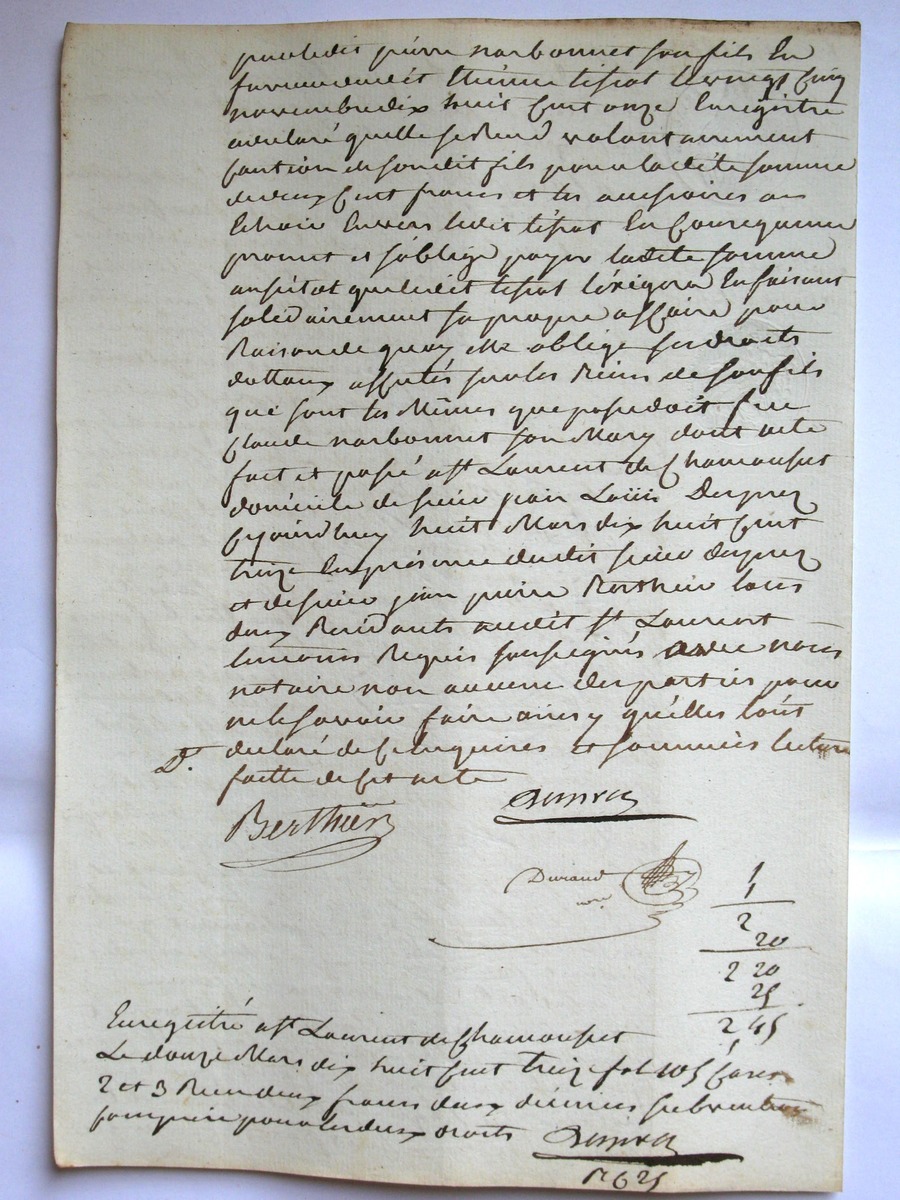 par ledit pierre narbonnet son fils En
faveur dudit tissot le vingt Cinq
novembre dix huit Cent onze Enregistré
a declaré quelle se Rend volontairement
Caution de son dit fils pour la dite somme
de deux Cent francs et les accessoires au
Echoir Envers ledit tissot En Consequence
promet et s'oblige payer ladite somme
aussitot que ledit tissot l'exigera En faisant
solidairement sa propre affaire pour
Raison de quoy elle oblige ses droits
dottaux affectés sur les Biens de son fils
qui sont les Mêmes que possedoit feu
Claude narbonnet son Mary dont acte
fait et passé a St Laurent de Chamousset
domicile de sieur jean Louis
Cejourdhuy huit Mars dix huit Cent
treize En présence dudit sieur
et de sieur jean pierre Berthier tous
deux Residants audit St Laurent
temoins Requis soussignés avec nous
notaire non aucune des parties pour
ne le savoir faire ainsy qu'elles l'ont
D. declaré de Ce Enquises et sommées lecture
faitte de Cet acte
Berthier
Durand
nre
1
1
2
20
2 20
25
2,45
Enregistré a St Laurent de Chamousset
Le douze Mars dix huit Cent treize fol 105 Cases
2 et 3 Recu deux francs deux décimes subvention
Comprise pour les deux droits